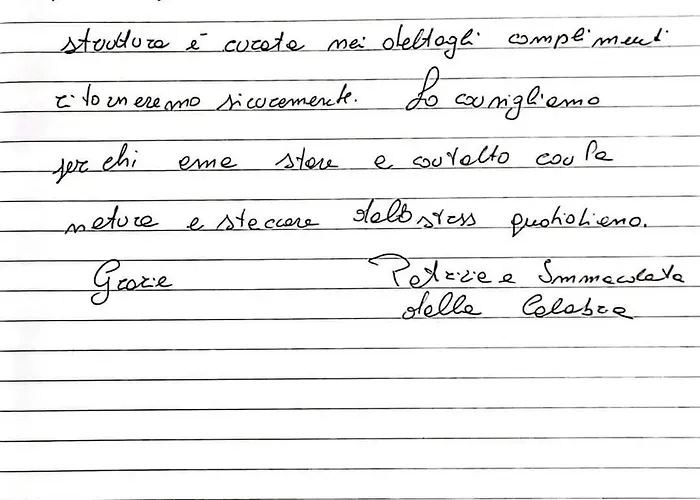 struttura è curata nei dettagli complimenti
ritorneremo sicuramente. Lo consigliamo
per chi ama stare a contatto con la
natura e staccare dallo stress quotidiano.
Grazie Patrizia e Immacolata
dalla Calabria